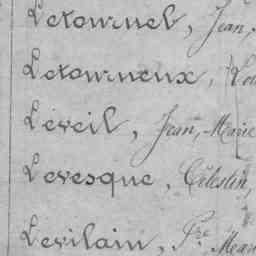 Letournel, Jean,
Letourneux,
Léveil, Jean, Marie
Levesque, Célestin,
Levilain, Pre Mean